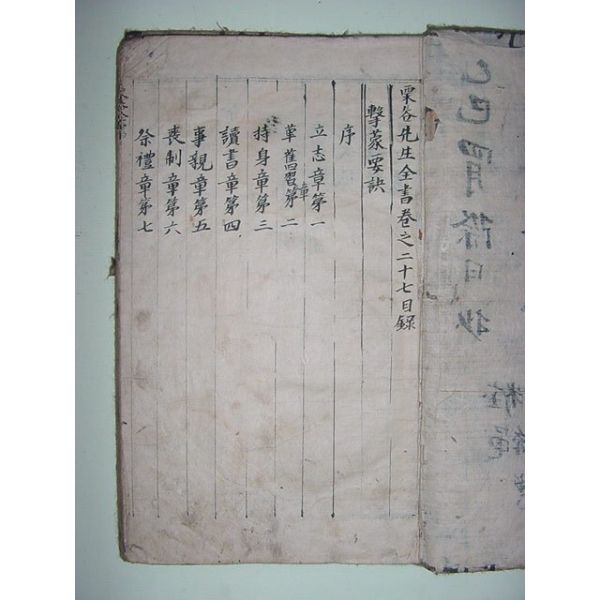 栗谷先生全書卷之二十七目錄
擊蒙要訣
序
立志章第一
革舊習章第二
持身章第三
讀書章第四
事親章第五
喪制章第六
祭禮章第七